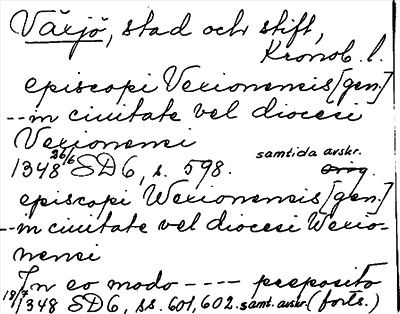 Växjö, stad och stift,
Kronob. l.
episcopi Vexionensis [gen.]
--in ciuitate vel diocesi
Vexionensi
1348 26/6 SD 6, s. 598. samtida avskr.
episcopi Wexionensis [gen.]
--in ciuitate vel diocesi Wexio-
nensi
In eo modo ---- preposito
18/7 1348 SD 6, ss. 601, 602. samt. avskr. (forts.)